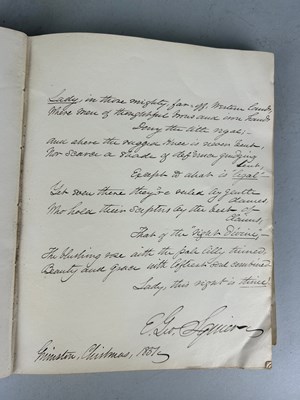 Lady, in those mighty, far-off Western Lands
Where men of thoughtful brows and iron hands
Deny the title regal—
and where the
knee is never bent,
Nor scarce a shade of deference
lent,
Except to what is "legal"—
Yet even there they're ruled by gentle
dames
Who hold their sceptres by the best of
claims,
That of the "right Divine,"
The blushing rose with the Oak
Beauty and grace with
combined
Lady, this right is thine!
E. Geo. Squier
Christmas, 1851.